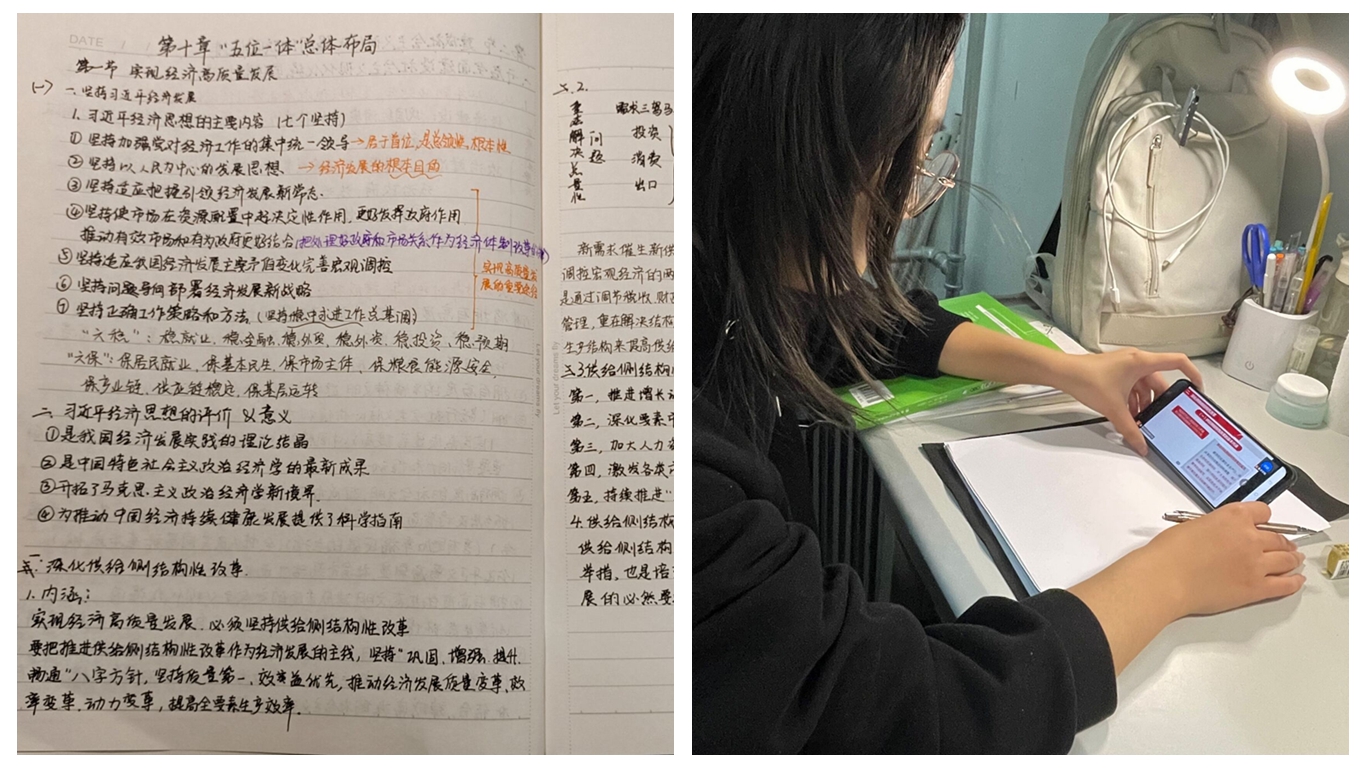 DATE
第十章 "五位一体"总体布局
第一节 实现经济高质量发展
(一)
一、坚持习近平经济发展
1. 习近平经济思想的主要内容 (七个坚持)
① 坚持加强党对经济工作的集中统一领导→居于首位,是总纲性、根本性
② 坚持以人民为中心的发展思想、→经济发展的根本目的
③ 坚持适应把握引领经济发展新常态.
④坚持使市场在资源配置中起决定性作用,更好发挥政府作用
推动有效市场和有为政府更好结合(把处理好政府和市场关系作为经济体制改革
⑤坚持适应我国经济发展主要矛盾变化完善宏观调控
⑥坚持问题导向部署经济发展新战略
⑦坚持正确工作策略和方法(坚持稳中求进工作总基调)
实现高质量发
展的重要途径
"六稳":稳就业、稳金融、稳外贸、稳外资、稳投资、稳预期
"六保":保居民就业、保基本民生、保市场主体、保粮食能源安全、
保产业链、供应链稳定、保基层运转
二、习近平经济思想的评价 & 意义
①是我国经济发展实践的理论结晶
②是中国特色社会主义政治经济学的最新成果
③开拓了马克思主义政治经济学新境界.
④为推动中国经济持续健康发展提供了科学指南
深化供给侧结构性改革.
1. 内涵:
实现经济高质量发展.必须坚持供给侧结构性改革
要把推进供给侧结构性改革作为经济发展的主线,坚持"巩固、增强、提升、
畅通"八字方针,坚持质量第一、效益优先,推动经济发展质量变革、效
率变革、动力变革,提高全要素生产效率.
Let your dreams fly
Let your dreams fly
2.
需求三驾马
解决总量性
问题
投资
消费
出口
新需求催生新供
调控宏观经济的两
是通过调节税收、财
管理,重在解决结构
生产结构来提高供给
3供给侧结构
第一、推进增长
第二、深化要素市
第三、加大人力
第四、激发各类
第五、持续推进"
4.供给侧结构
供给侧结构
举措,也是培
展的必然要